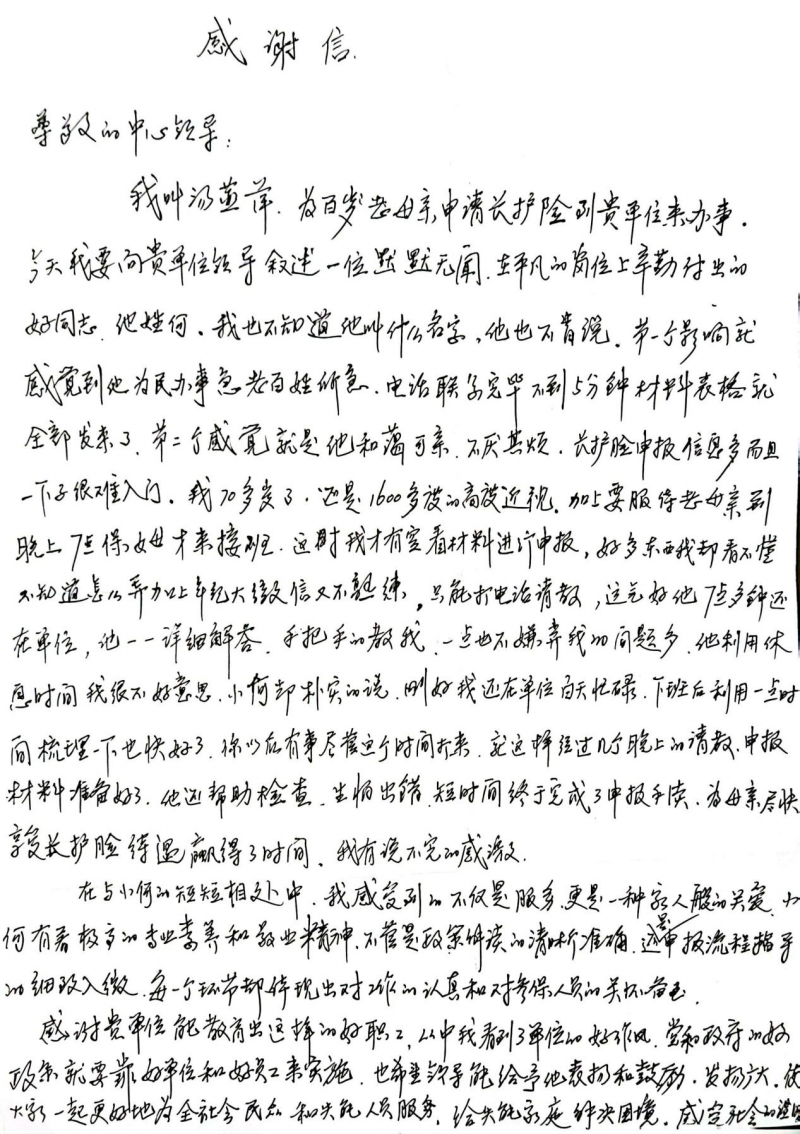 感谢信
尊敬的中心领导:
我叫汤萍,为百岁老母亲申请长护险到贵单位来办事。
今天我要向贵单位领导叙述一位默默无闻、在平凡的岗位上辛勤付出的
好同志,他姓何。我也不知道他叫什么名字,他也不肯说。第一个影响就
感觉到他为民办事急老百姓所急,电话联系完毕不到5分钟材料表格就
全部发来了,第二个感觉就是他和蔼可亲,不厌其烦,长护脸申报信息多而且
一下子很难入门。我70多岁了,还是1600多度的高度近视,加上要服侍老母亲到
晚上7点保姆才来接班,这时我才有空看材料进行申报,好多东西我却看不懂
不知道怎么弄加上年纪大微信又不熟练,只能打电话请教,这克好他7点多钟还
在单位,他一一详细解答,手把手的教我,一点也不嫌弃我的问题多,他利用休
息时间我很不好意思,小何却朴实的说,刚好我还在单位白天忙碌,下班后利用一点时
间梳理一下也快好了,你以后有事尽管这个时间打来,就这样经过几个晚上的请教,申报
材料准备好了,他还帮助检查,生怕出错,短时间终于完成了申报手续,为母亲尽快
享受长护脸待遇赢得了时间,我有说不完的感激。
在与小何的短短相处中,我感受到的不仅是服务,更是一种家人般的关爱,小
何有着极高的专业素养和敬业精神,不管是政策解读的清晰准确,还是申报流程指导
的细致入微,每一个环节都体现出对工作的认真和对参保人员的关怀备至。
感谢贵单位能教育出这样的好职工,从中我看到了单位的好作风,党和政府的好
政策就要靠好单位和好员工来实施,也希望领导能给予他表扬和鼓励,发扬广大,使
大家一起更好地为全社会民众和失能人员服务,给失能家庭解决困境,感定社会的